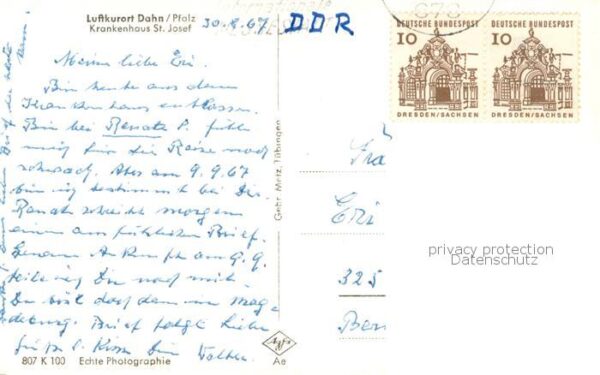 Luftkurort Dahn/Pfalz
Krankenhaus St. Josef
30.8.67
DDR
678
DEUTSCHE BUNDESPOST
10
DRESDEN/SACHSEN
DEUTSCHE BUNDESPOST
10
DRESDEN/SACHSEN
Meine liebe Eri.
Bin heute aus dem
Krankenhaus entlassen.
Bin bei Renate P. fühle
mich für die Reise noch
schwach. Aber am 9.9.67
bin ich bestimmt bei Dir.
Renate schreibt morgen
einen ausführlichen Brief.
Genaue Ankunft am 9.9.
teile ich Dir noch mit.
Du bist doch dann in Mag
deburg. Brief folgt Liebe
Grüße Walter.
Gebr. Metz, Tübingen
Fra
Eri
325
Ber
privacy protection
Datenschutz
807 K 100 Echte Photographie
Agfa
Ae